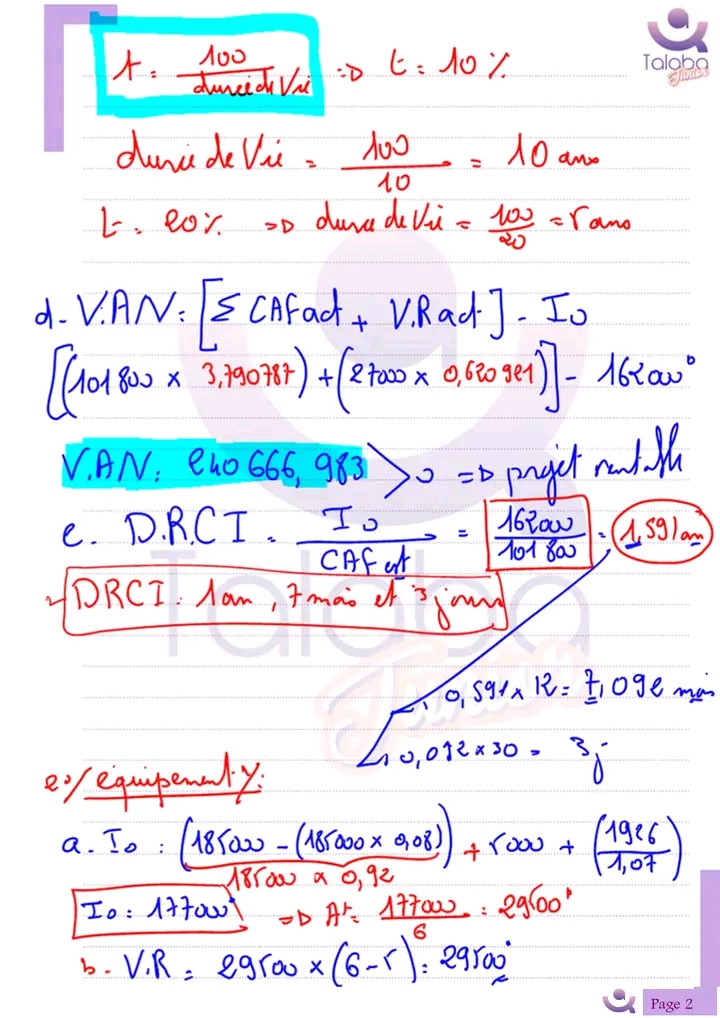 Talaba
Junior
t = 100 / durée de Vie => t = 10 %
durée de Vie = 100 / 10 = 10 ans
t = 20 % => durée de Vie = 100 / 20 = 5 ans
d - V.A.N = [Σ CAF act + V.R act] - I0
[(101 800 × 3,790787) + (27000 × 0,620921)] - 162000
V.A.N = 240 666, 983 > 0 => projet rentable
e. D.R.C.I = I0 / CAF est = 162000 / 101 800 = 1,591 an
DRCI : 1 an, 7 mois et 3 jours
0,591 × 12 = 7,092 mois
0,092 × 30 = 3 j
2°/ équipement Y :
a. I0 : (185000 - (185000 × 0,08)) + 5000 + (1926 / 1,07)
185000 × 0,92
I0 = 177000 => At = 177000 / 6 = 29500
b. V.R = 29500 × (6 - 5) = 29500
Page 2